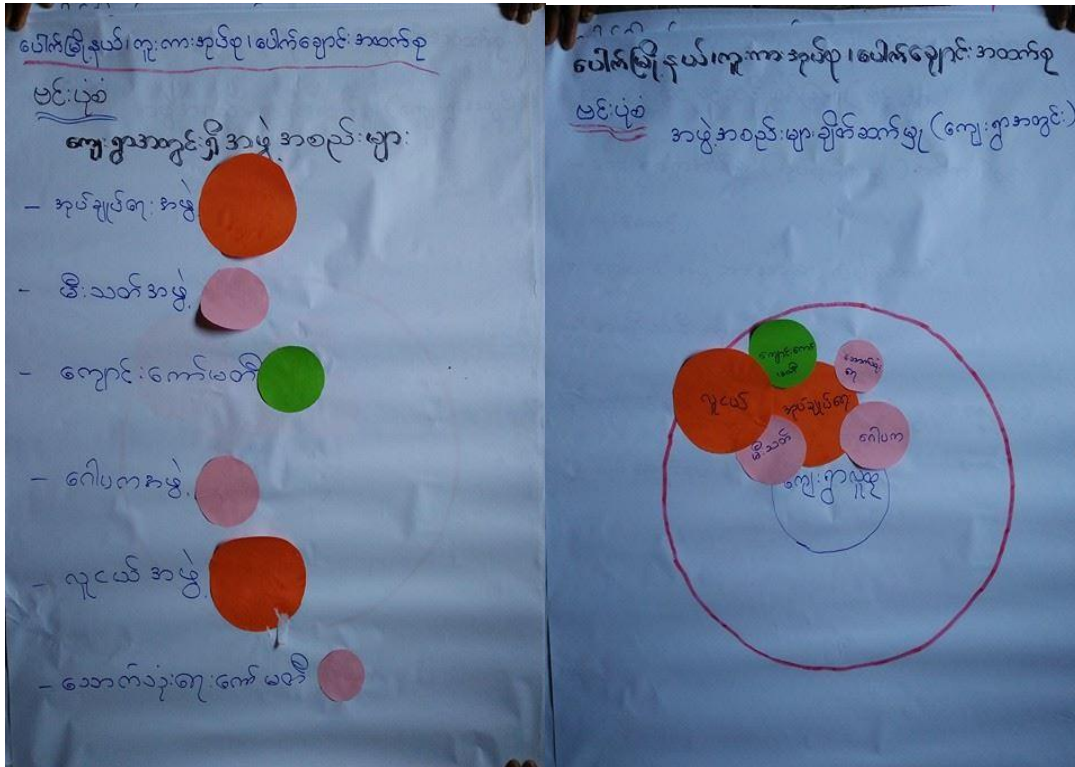 ပေါက်မြို့နယ်၊ကူးကားအုပ်စု၊ပေါက်ချောင်းအထက်စု
ဗင်းပုံစံ
ကျေးရွာအတွင်းရှိအဖွဲ့အစည်းများ
- အုပ်ချုပ်ရေးအဖွဲ့
- မီးသတ်အဖွဲ့
- ကျောင်းကော်မတီ
- ဂေါပကအဖွဲ့
- လူငယ်အဖွဲ့
- သောက်သုံးရေးကော်မတီ
ပေါက်မြို့နယ်၊ကူးကားအုပ်စု၊ပေါက်ချောင်းအထက်စု
ဗင်းပုံစံ
အဖွဲ့အစည်းများချိတ်ဆက်မှု(ကျေးရွာအတွင်း)
ကျောင်းကော်
မတီ
လူငယ်
အုပ်ချုပ်ရေး
မီးသတ်
ဂေါပက
ကျေးရွာလူထု